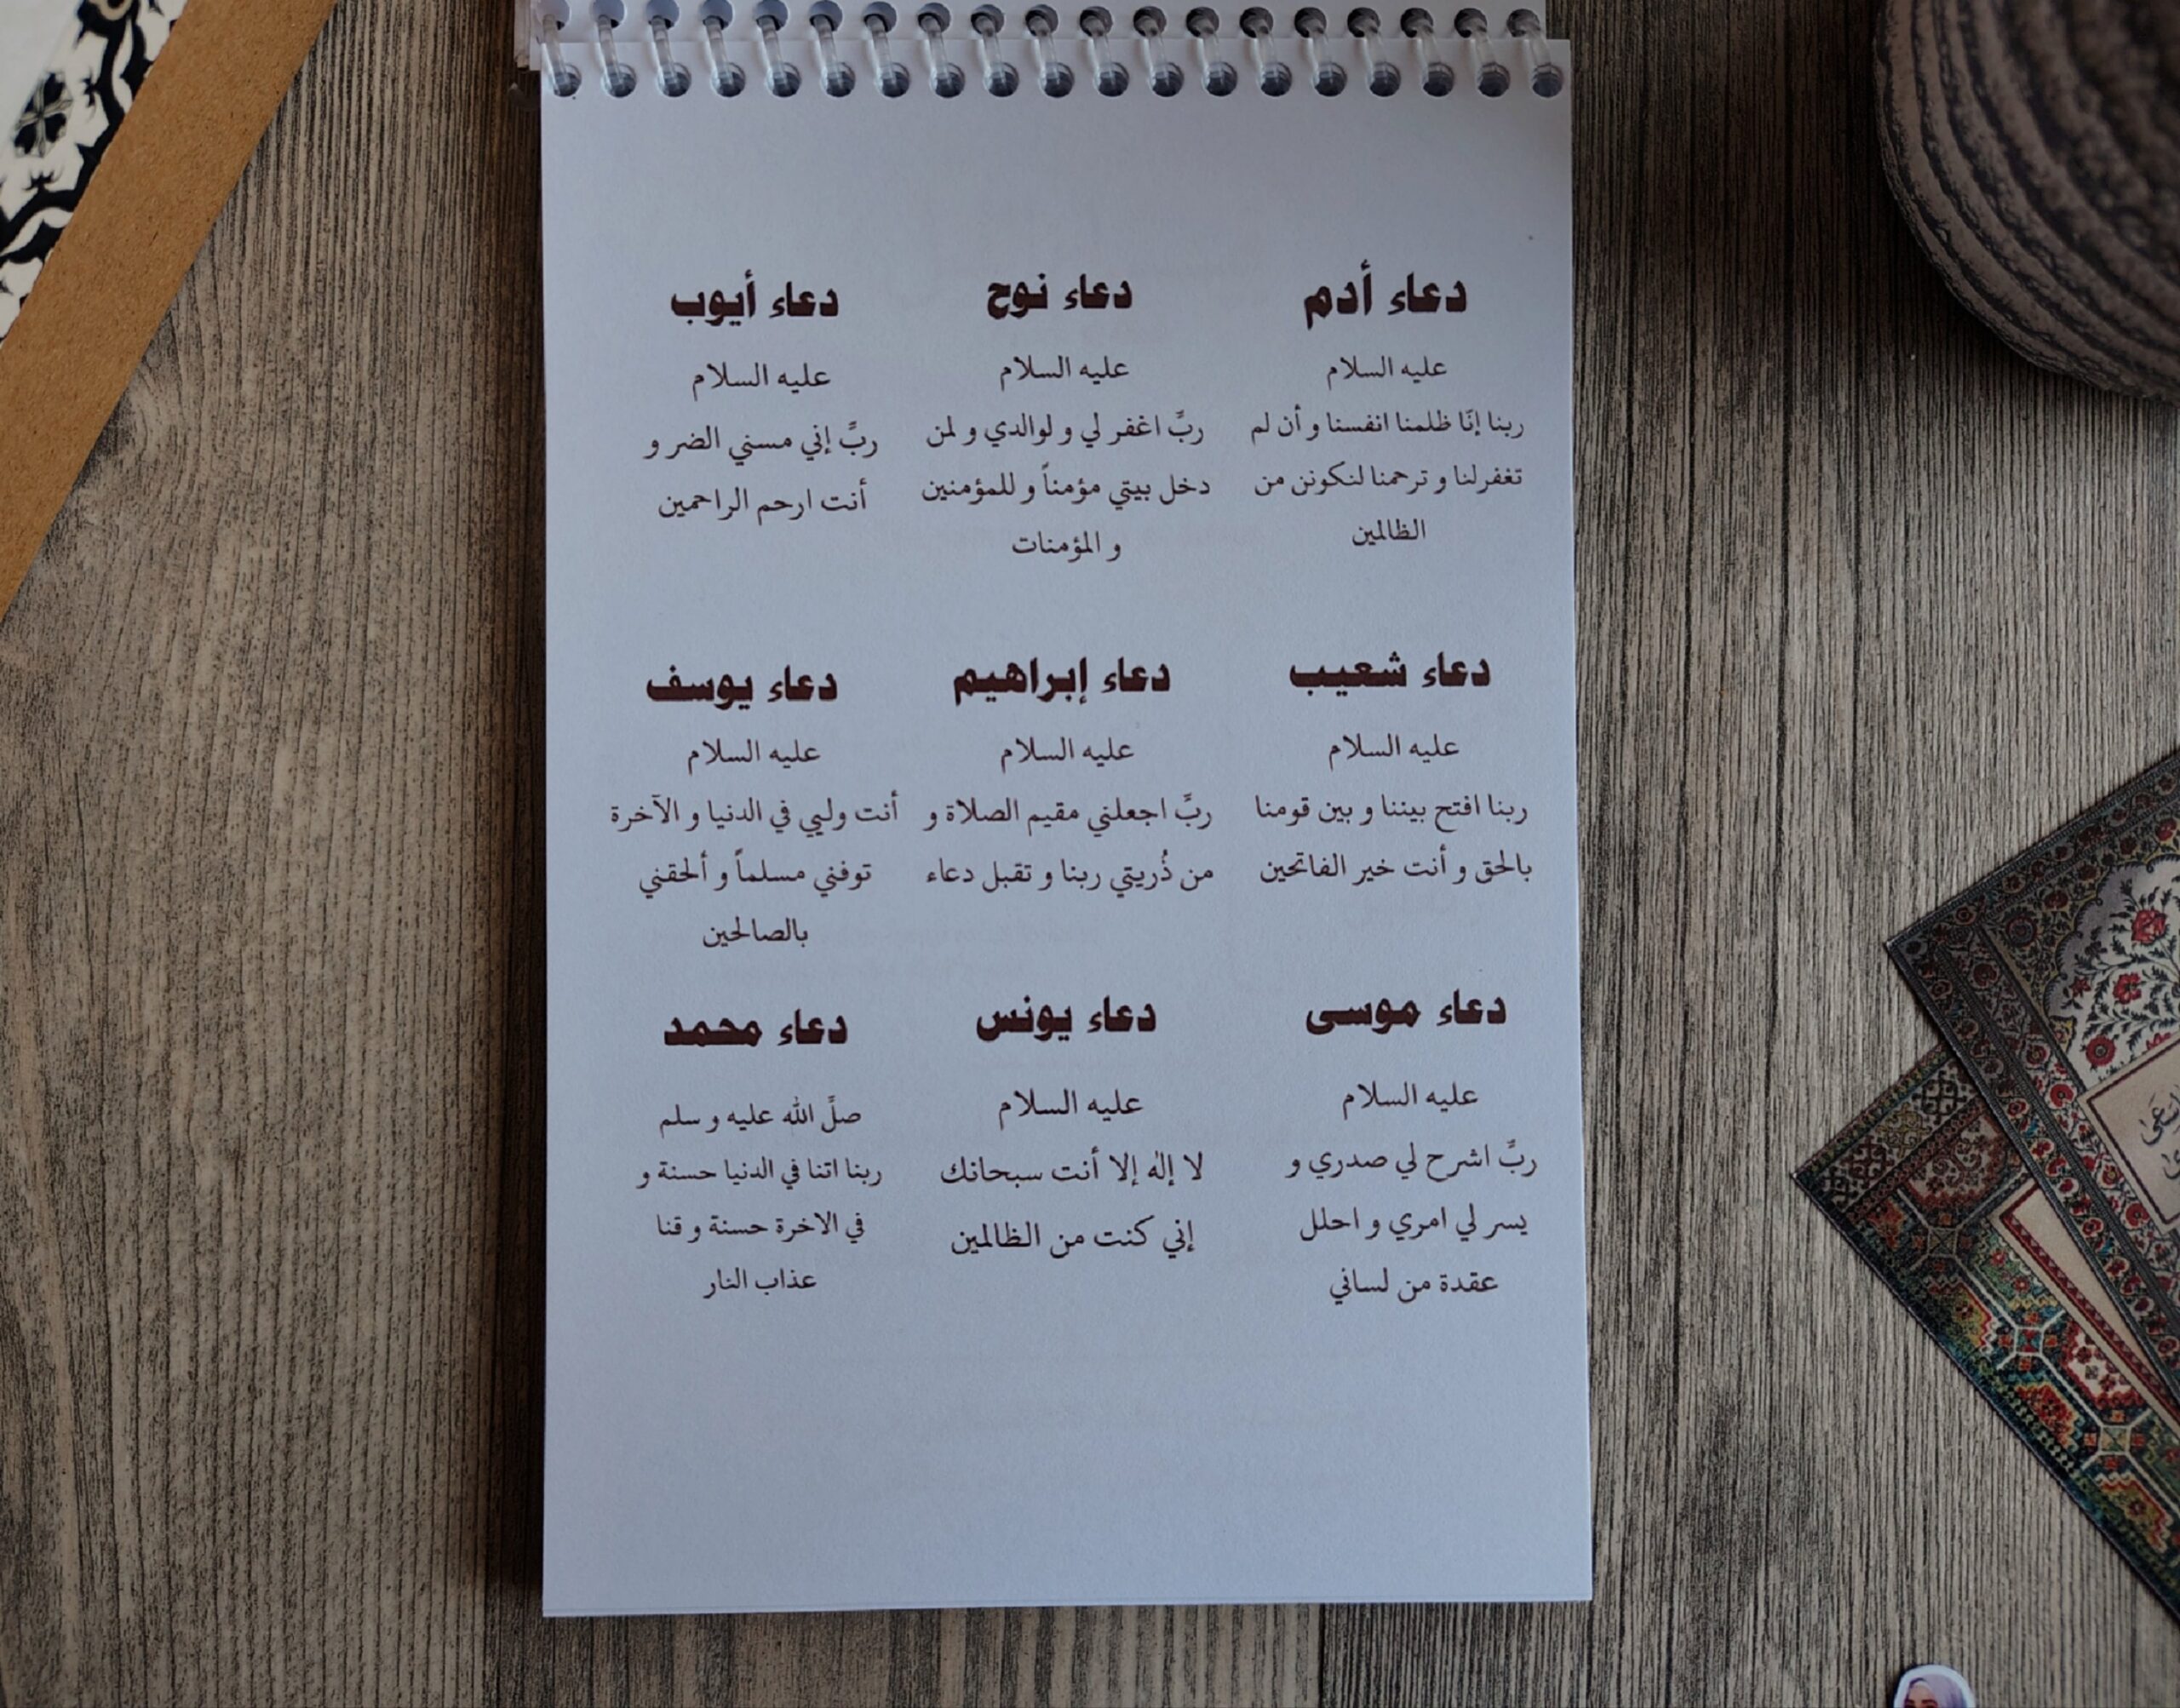 دعاء أدم
عليه السلام
ربنا إنّا ظلمنا انفسنا و أن لم
تغفرلنا و ترحمنا لنكونن من
الظالمين
دعاء نوح
عليه السلام
ربِّ اغفر لي و لوالدي و لمن
دخل بيتي مؤمناً و للمؤمنين
و المؤمنات
دعاء أيوب
عليه السلام
ربِّ إني مسني الضر و
أنت ارحم الراحمين
دعاء شعيب
عليه السلام
ربنا افتح بيننا و بين قومنا
بالحق و أنت خير الفاتحين
دعاء إبراهيم
عليه السلام
ربِّ اجعلني مقيم الصلاة و
من ذُريتي ربنا و تقبل دعاء
دعاء يوسف
عليه السلام
أنت وليي في الدنيا و الآخرة
توفني مسلماً و ألحقني
بالصالحين
دعاء موسى
عليه السلام
ربِّ اشرح لي صدري و
يسر لي امري و احلل
عقدة من لساني
دعاء يونس
عليه السلام
لا إله إلا أنت سبحانك
إني كنت من الظالمين
دعاء محمد
صلِّ الله عليه و سلم
ربنا اتنا في الدنيا حسنة و
في الاخرة حسنة و قنا
عذاب النار